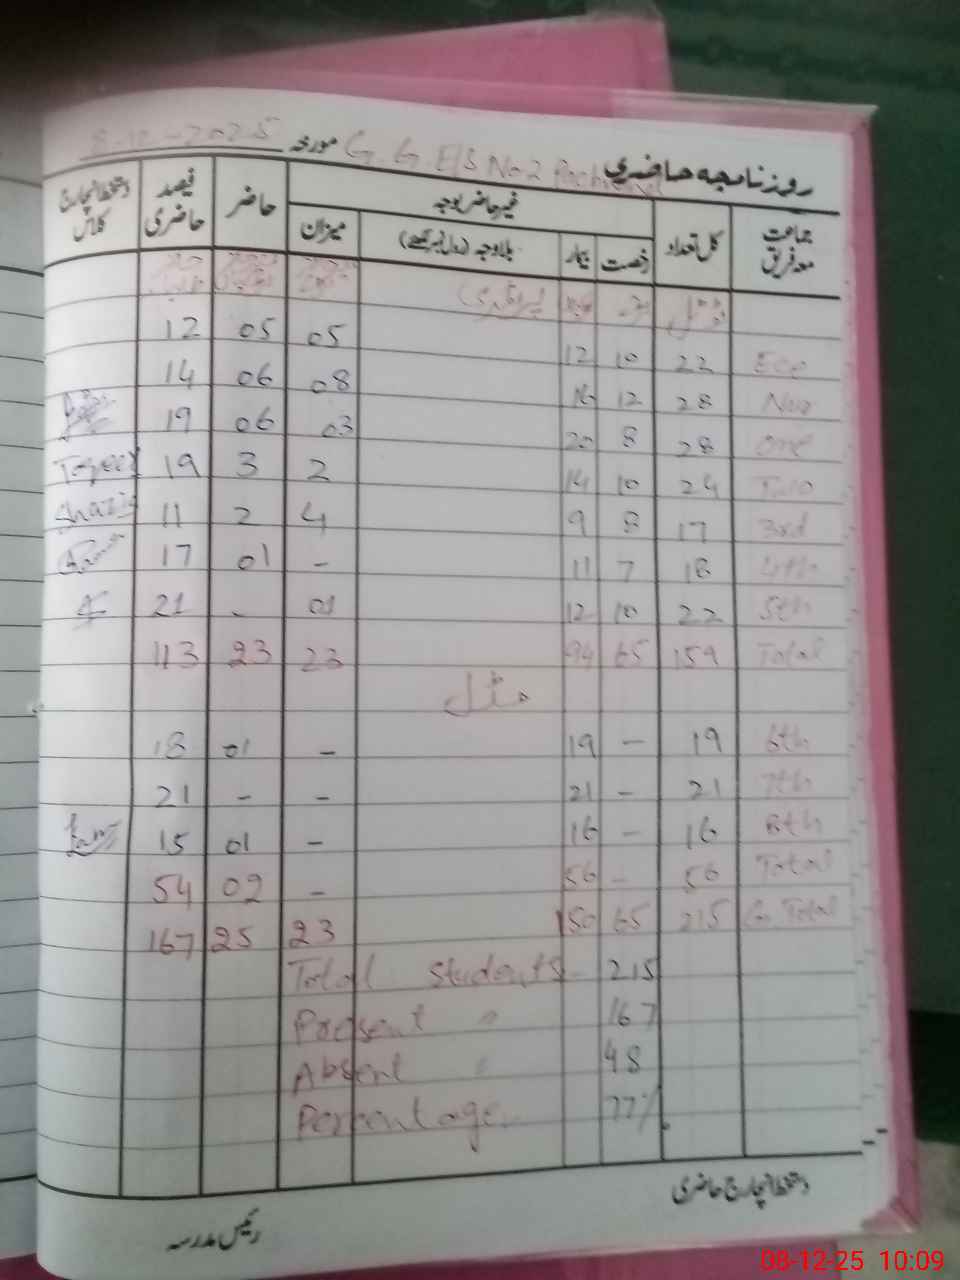 روزنامچہ حاضری G.G.E/S No.2 مورخہ 8-12-2025
جماعت معہ فریق کل تعداد غیر حاضر بوجہ حاضر فیصد حاضری دستخط انچارج کلاس
رخصت بیمار بلاوجہ (رول نمبر لکھیے) میزان
ٹوٹل پرائمری
Ece 22 10 12 05 05 12
Nur 28 12 16 08 06 14
one 28 8 20 03 06 19
Two 24 10 14 2 3 19
3rd 17 8 9 4 2 11 Shazia
4th 18 7 11 - 01 17
5th 22 10 12 01 - 21
Total 159 65 94 23 23 113
مڈل
6th 19 - 19 - 01 18
7th 21 - 21 - - 21
8th 16 - 16 - 01 15
Total 56 - 56 - 02 54
G. Total 215 65 150 23 25 167
Total students - 215
Present " 167
Absent " 48
Percentage. 77%
دستخط انچارج حاضری
رئیس مدرسہ
08-12-25 10:09